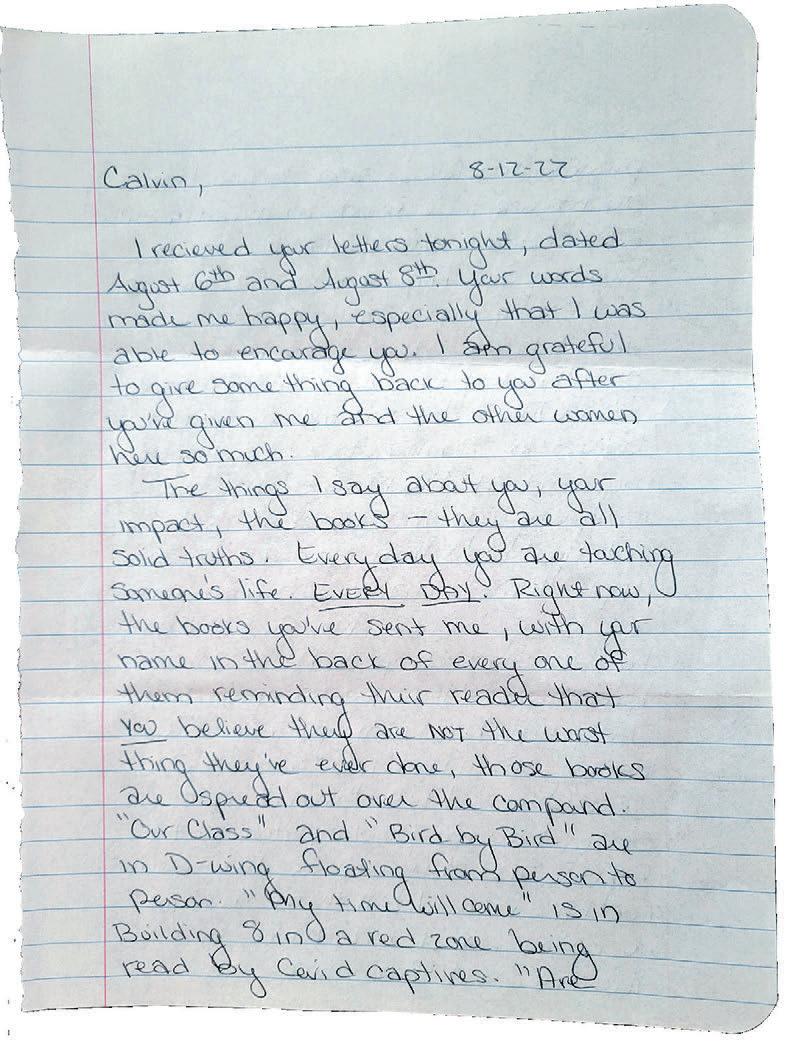 Calvin, 8-12-22
I recieved your letters tonight, dated
August 6th and August 8th. Your words
made me happy, especially that I was
able to encourage you. I am grateful
to give something back to you after
you've given me and the other women
here so much.
The things I say about you, your
impact, the books – they are all
solid truths. Everyday you are touching
someone's life. EVERY DAY. Right now,
the books you've sent me, with your
name in the back of every one of
them reminding their reader that
you believe they are NOT the worst
thing they've ever done, those books
are spread out over the compound.
"Our Class" and "Bird by Bird" are
in D-wing floating from person to
person. "My time will come" is in
Building 8 in a red zone being
read by Covid captives. "Are